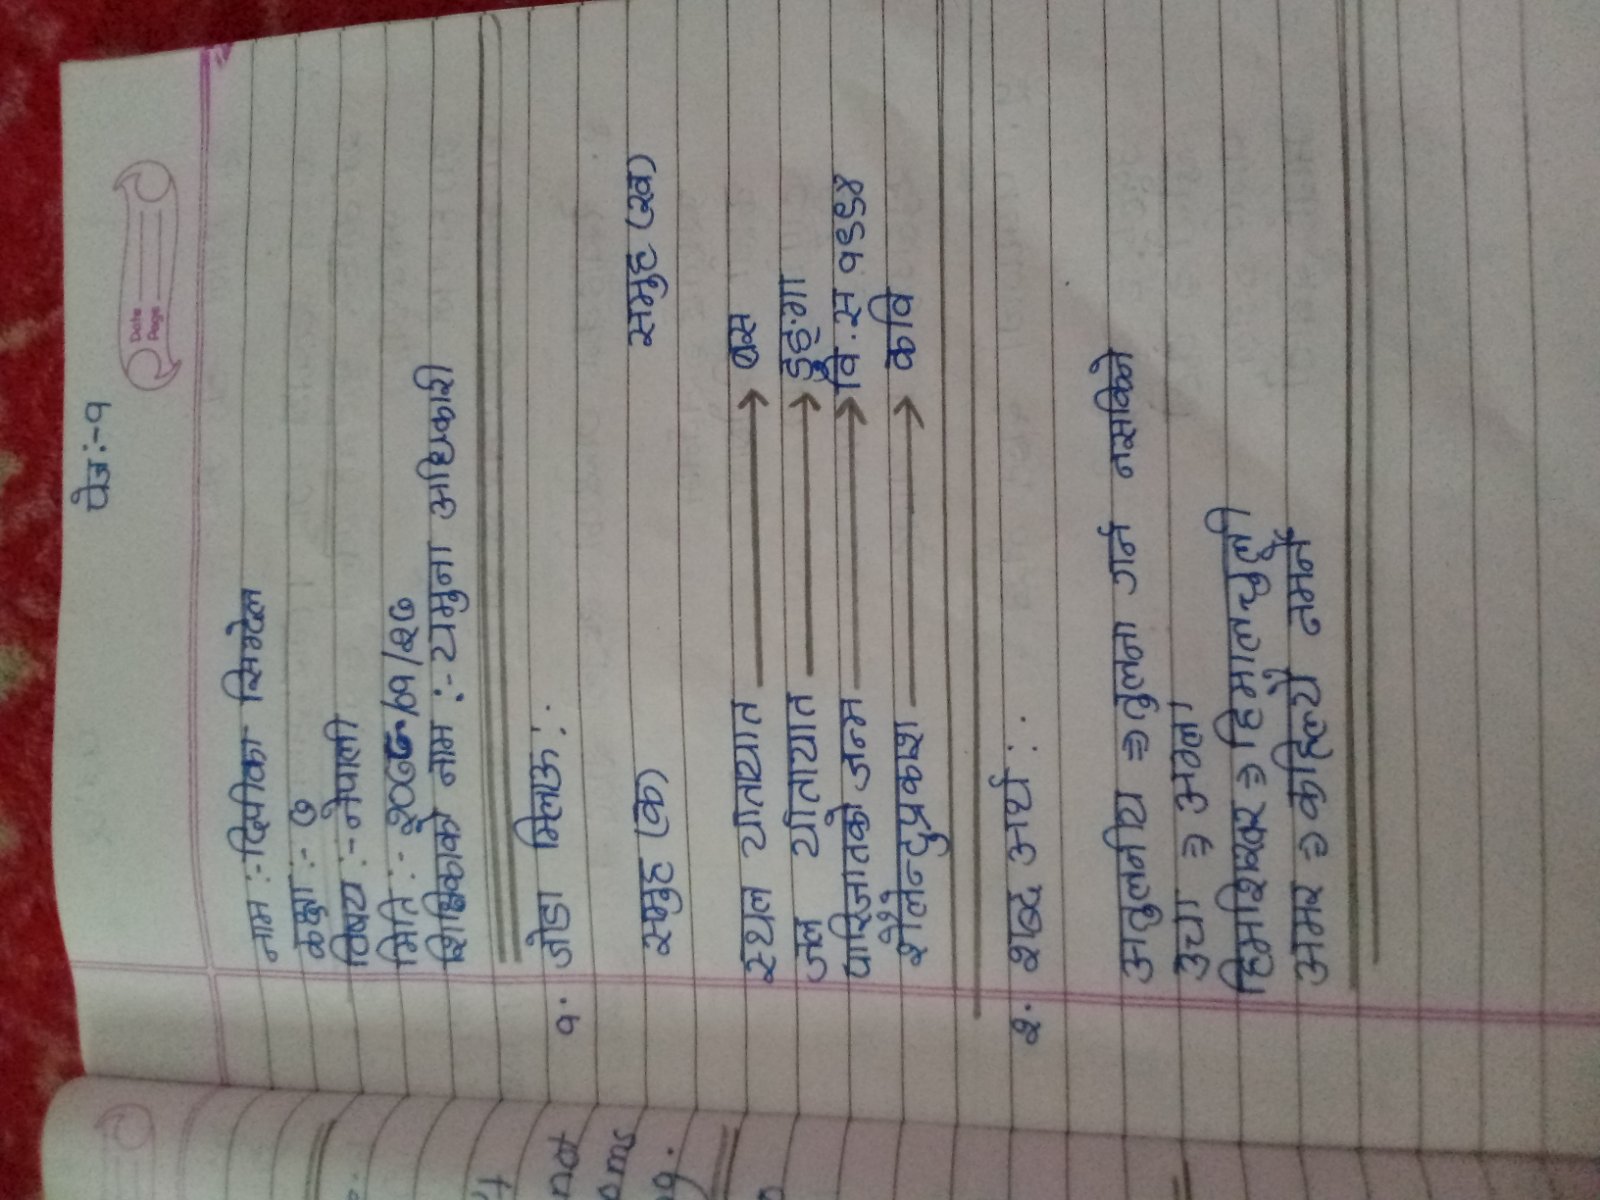 पेज:-१
Date
Page
नाम :- दिपीका सिग्देल
कक्षा :- ७
विषय :- नेपाली
मिति :- २०७८/७१/२७
शिक्षिकाको नाम :- यमुना अधिकारी
१. जोडा मिलाऊ :-
समुह (क) समुह (ख)
स्थल यातायात → बस
जल यातायात → डुङ्गा
पारिजातको जन्म → वि.स १९९४
शैलेन्दुप्रकाश → कवि
२. शब्द अर्थ :-
अतुलनीय ⇒ तुलना गर्न नसकिने
उचा ⇒ अग्ला
हिमशिखर ⇒ हिमालचुली
अमर ⇒ कहिल्यै नमर्ने
not
oms
ng.